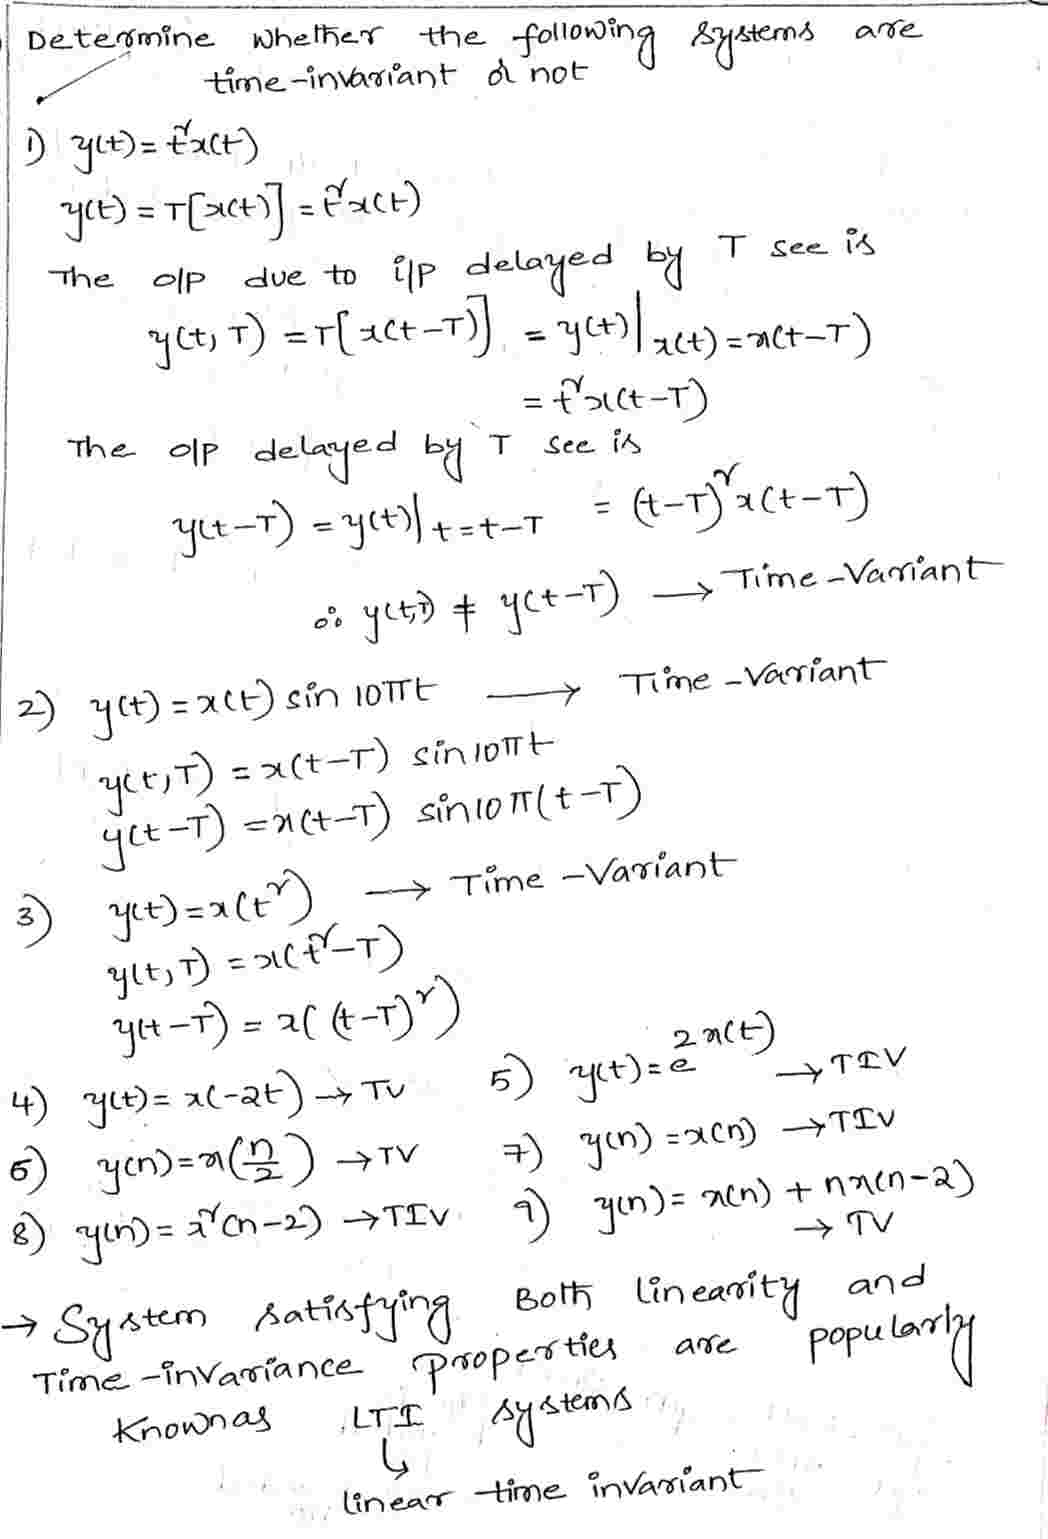 Determine whether the following systems are
time-invariant or not
1) y(t) = t²x(t)
y(t) = T[x(t)] = t²x(t)
The o/p due to i/p delayed by T see is
y(t, T) = T[x(t-T)] = y(t)|x(t) = x(t-T)
= t²x(t-T)
The o/p delayed by T see is
y(t-T) = y(t)|t=t-T = (t-T)²x(t-T)
∴ y(t,T) ≠ y(t-T) → Time-Variant
2) y(t) = x(t) sin 10πt → Time-Variant
y(t,T) = x(t-T) sin10πt
y(t-T) = x(t-T) sin10π(t-T)
3) y(t) = x(t²) → Time-Variant
y(t,T) = x(t²-T)
y(t-T) = x((t-T)²)
4) y(t) = x(-2t) → TV 5) y(t) = e^{2x(t)} → TIV
6) y(n) = x(n/2) → TV 7) y(n) = x(n) → TIV
8) y(n) = x²(n-2) → TIV 9) y(n) = x(n) + nx(n-2)
→ TV
→ System satisfying Both linearity and
Time-invariance properties are popularly
Known as LTI systems
↳
linear time invariant